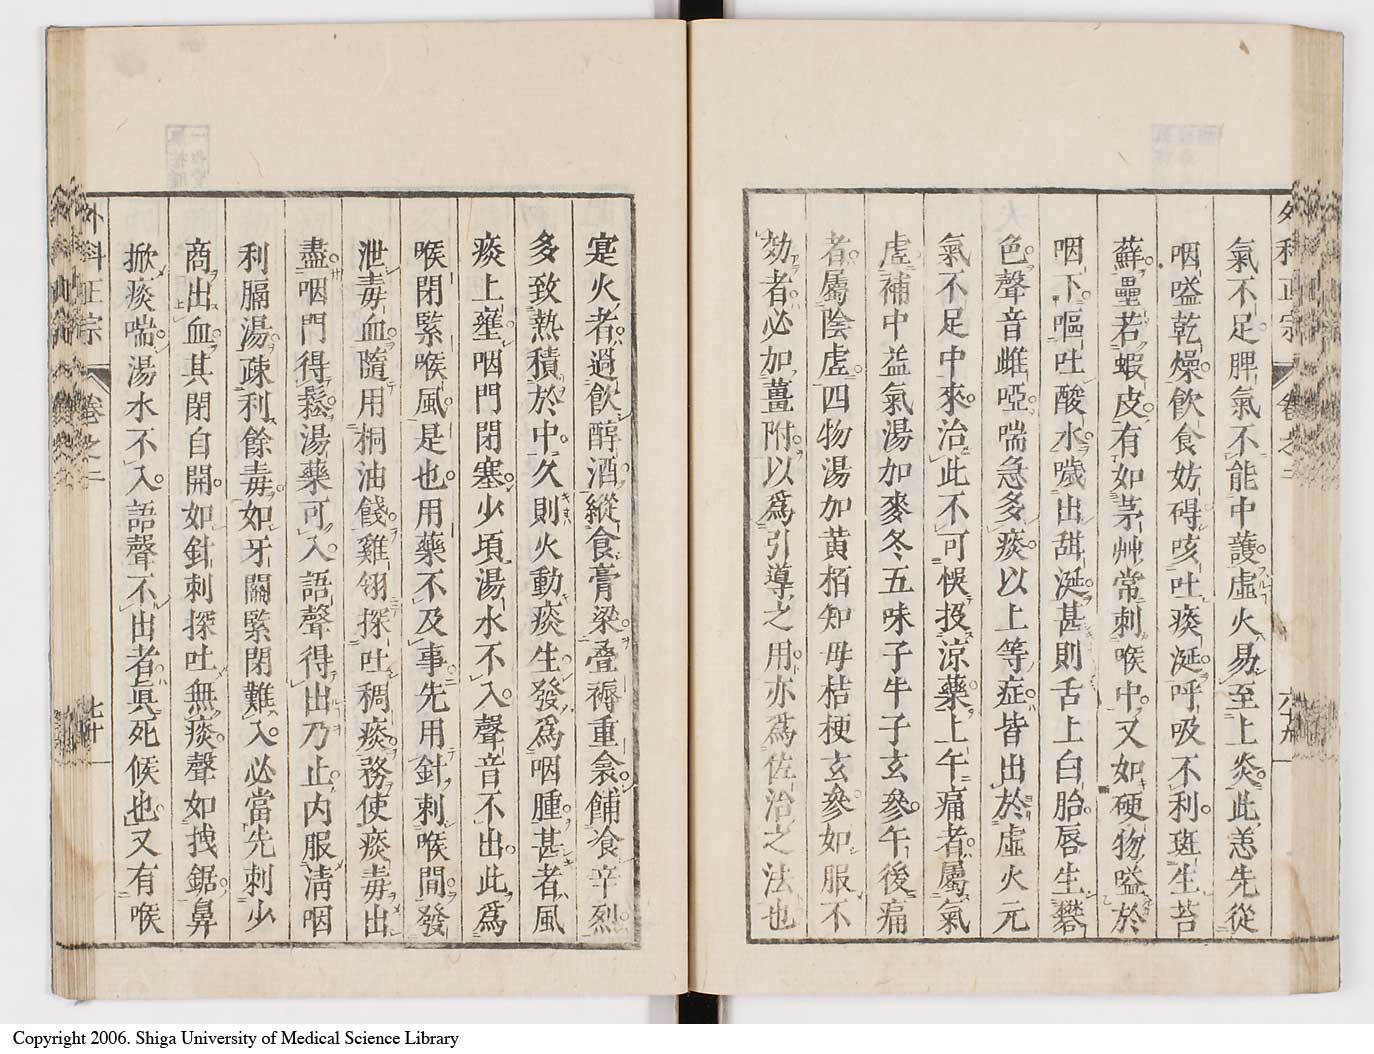 外科正宗 卷之二 六十九
氣不足脾氣不能中護虛火易至上炎此恙先從
咽嗌乾燥飲食妨碍咳吐痰涎呼吸不利斑生苔
蘚壘若蝦皮有如茅艸常刺喉中又如硬物嗌於
咽下嘔吐酸水噦出甜涎甚則舌上白胎唇生礬
色聲音雌啞喘急多痰以上等症皆出於虛火元
氣不足中來治此不可悞投涼藥上午痛者屬氣
虛補中益氣湯加麥冬五味子牛子玄參午後痛
者屬陰虛四物湯加黄栢知母桔梗玄參如服不
効者必加薑附以爲引導之用亦爲佐治之法也
寔火者過飲醇酒縱食膏梁疊褥重衾餔飡辛烈
多致熱積於中久則火動痰生發爲咽腫甚者風
痰上壅咽門閉塞少頃湯水不入聲音不出此爲
喉閉緊喉風是也用藥不及事先用針刺喉間發
泄毒血隨用桐油餞雞翎探吐稠痰務使痰毒出
盡咽門得鬆湯藥可入語聲得出乃止内服清咽
利膈湯疎利餘毒如牙關緊閉難入必當先刺少
商出血其閉自開如針刺探吐無痰聲如拽鋸鼻
掀痰喘湯水不入語聲不出者眞死候也又有喉
外科正宗 卷之二 七十
Copyright 2006. Shiga University of Medical Science Library